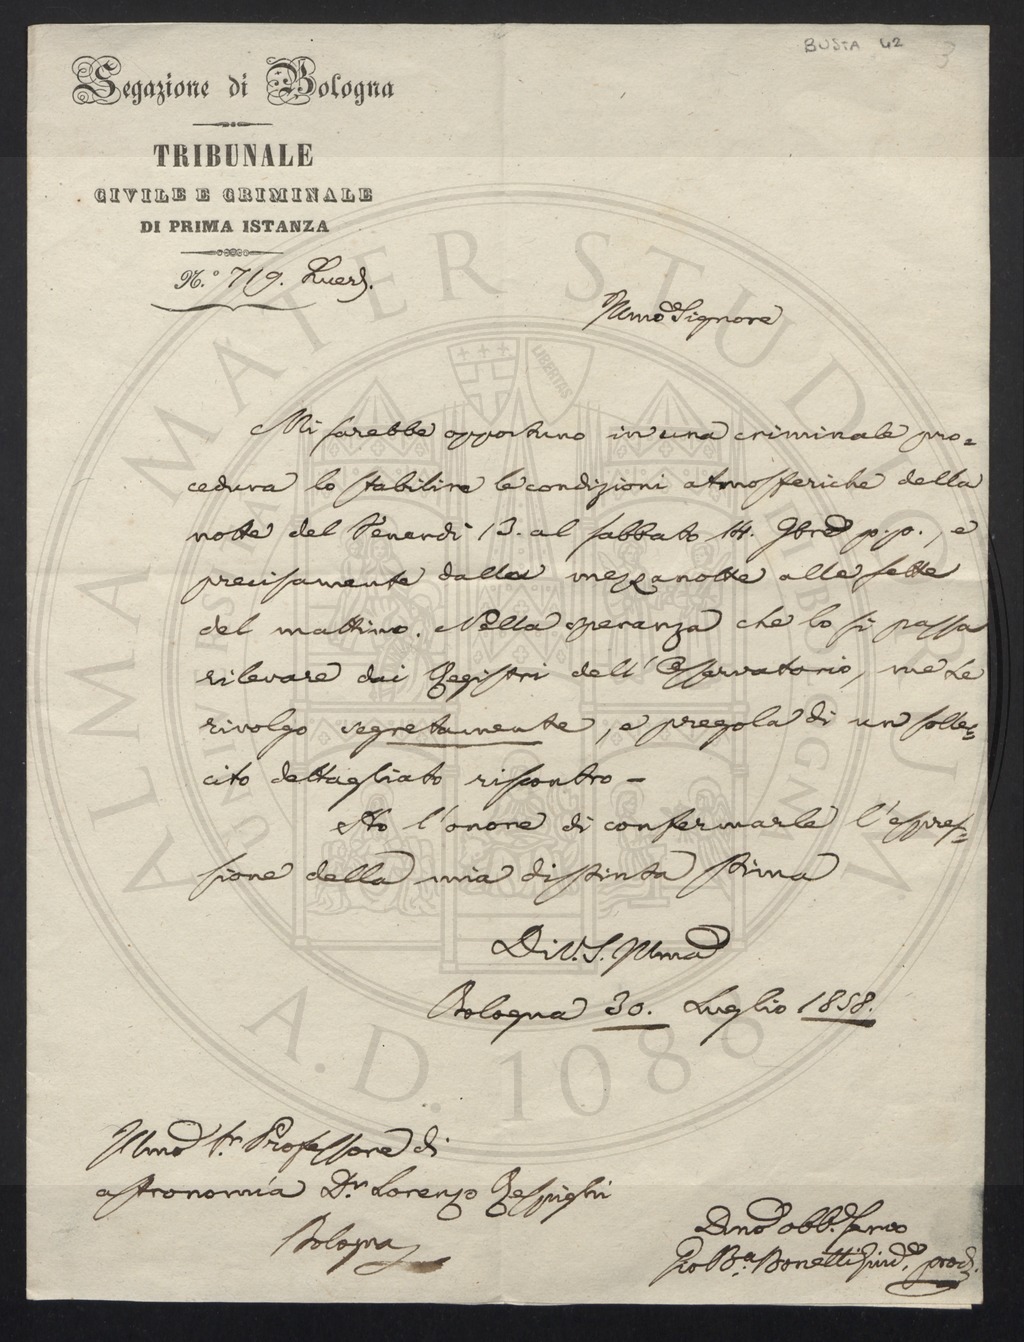 BUSTA 42
3
Legazione di Bologna
TRIBUNALE
CIVILE E CRIMINALE
DI PRIMA ISTANZA
N.° 719.
Illmo Signore
Mi sarebbe opportuno in una criminale pro=
cedura lo stabilire le condizioni atmosferiche della
notte del Venerdì 13. al sabbato 14. 9bre p.p., e
precisamente dalla mezzanotte alle sette
del mattino. Nella speranza che lo si possa
rilevare dai Registri dell'Osservatorio, me Le
rivolgo segretamente, e pregola di un solle=
cito dettagliato riscontro –
Ho l'onore di confermarle l'espres=
sione della mia distinta stima
Di V. S. Illma
Bologna 30. Luglio 1858.
Illmo Sr Professore di
astronomia Dr Lorenzo Respighi
Bologna
Devmo obb. servo
Gio Ba. Bonetti Giud. proc.
ALMA MATER STUDIORUM
UNIVERSITÀ DI BOLOGNA
LIBERTAS
A.D. 1088